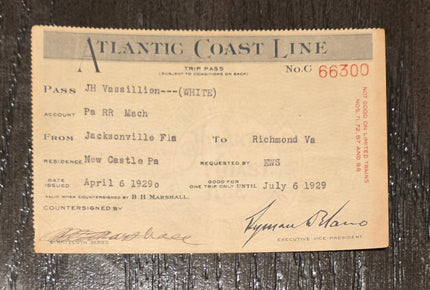 ATLANTIC COAST LINE
TRIP PASS
(SUBJECT TO CONDITIONS ON BACK)
No.G 66300
PASS JH Vassillion---(WHITE)
ACCOUNT Pa RR Mach
FROM Jacksonville Fla TO Richmond Va
RESIDENCE New Castle Pa REQUESTED BY EWS
DATE ISSUED April 6 1929o GOOD FOR ONE TRIP ONLY UNTIL July 6 1929
VALID WHEN COUNTERSIGNED BY B.H. MARSHALL.
COUNTERSIGNED BY
Marshall
EXECUTIVE VICE-PRESIDENT
SERIES
NOT GOOD ON LIMITED TRAINS
NOS.